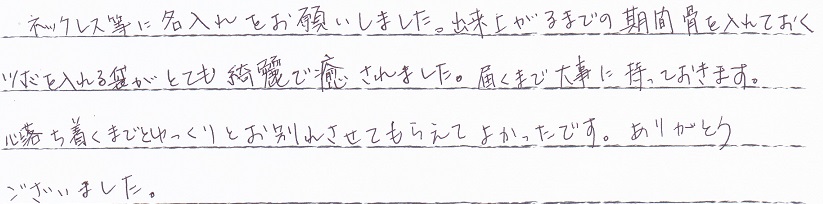 ネックレス等に名入れをお願いしました。出来上がるまでの期間骨を入れておく
ツボを入れる袋がとても綺麗で癒されました。届くまで大事に持っておきます。
心落ち着くまでとゆっくりとお別れさせてもらえてよかったです。ありがとう
ございました。